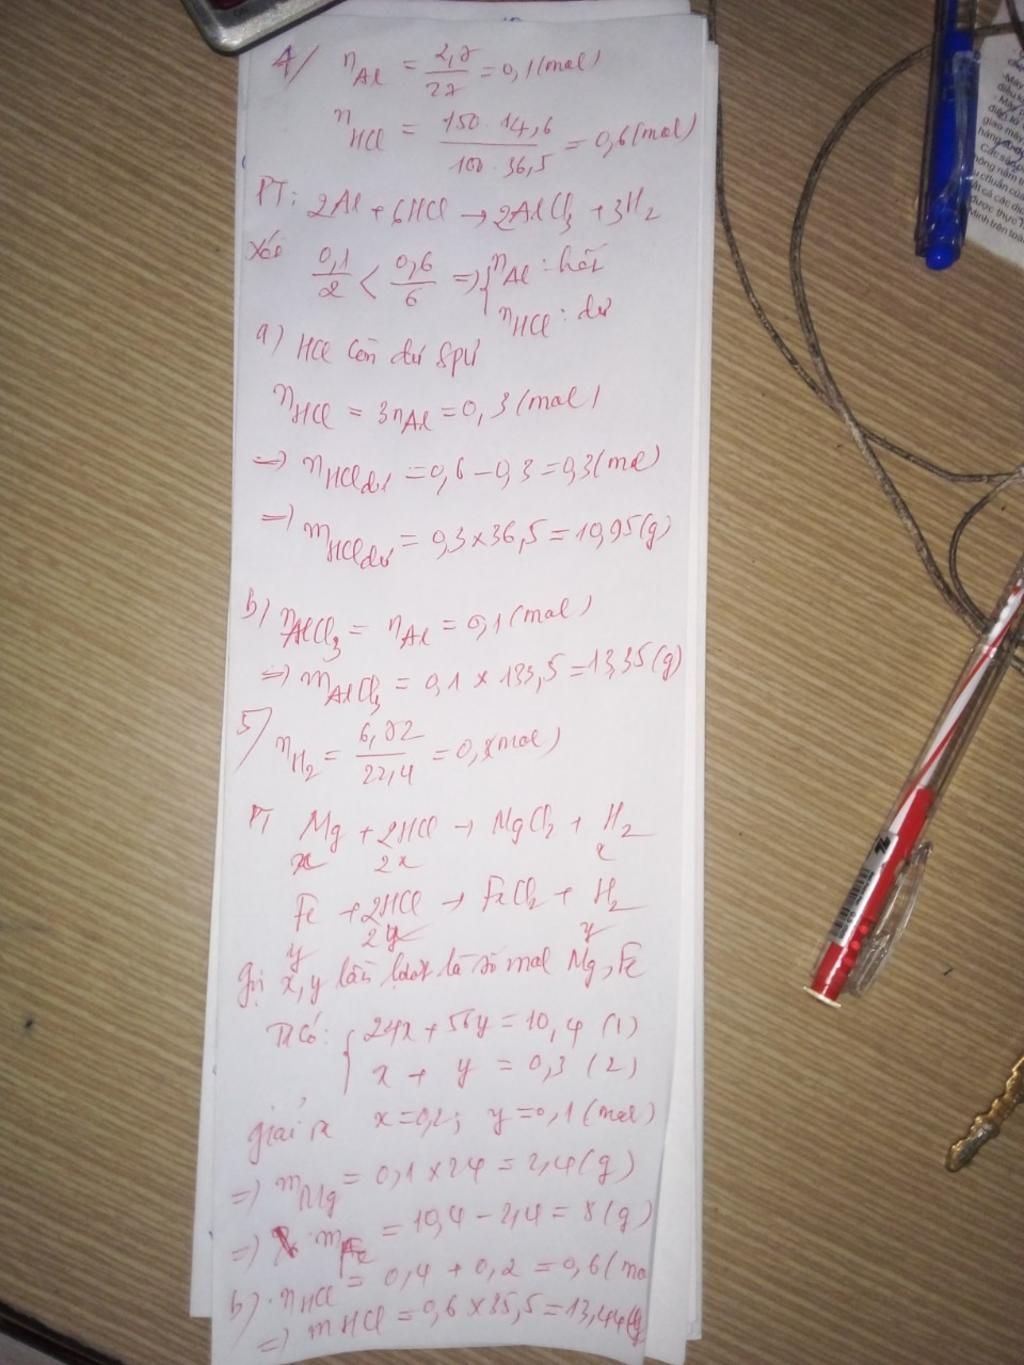 4/ nAl = 2,7/27 = 0,1 (mol)
nHCl = 150.14,6/100.36,5 = 0,6 (mol)
PT: 2Al + 6HCl → 2AlCl3 + 3H2
Xét 0,1/2 < 0,6/6 => { nAl : hết
nHCl : dư
a) HCl còn dư spư
nHCl = 3nAl = 0,3 (mol)
=> nHCl dư = 0,6 - 0,3 = 0,3 (mol)
=> mHCl dư = 0,3 x 36,5 = 10,95 (g)
b) nAlCl3 = nAl = 0,1 (mol)
=> mAlCl3 = 0,1 x 133,5 = 13,35 (g)
5/ nH2 = 6,72/22,4 = 0,3 (mol)
PT Mg + 2HCl → MgCl2 + H2
x 2x x
Fe + 2HCl → FeCl2 + H2
y 2y y
gọi x, y lần lượt là số mol Mg, Fe
Ta có: { 24x + 56y = 10,4 (1)
x + y = 0,3 (2)
giải ra x = 0,2; y = 0,1 (mol)
=> mMg = 0,1 x 24 = 2,4 (g)
=> mFe = 10,4 - 2,4 = 8 (g)
b) nHCl = 0,4 + 0,2 = 0,6 (mo
=> mHCl = 0,6 x 35,5 = 13,44 (g